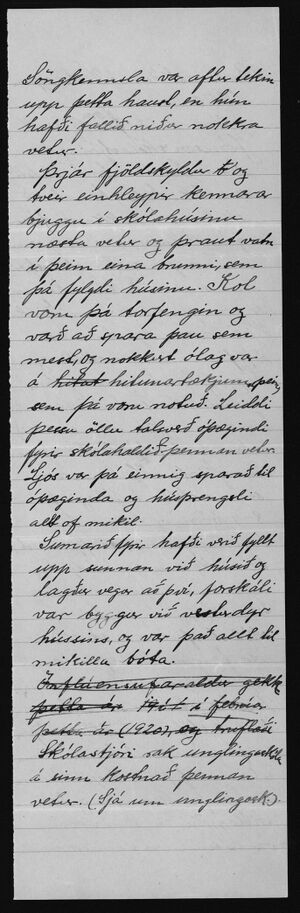 Söngkennsla var aftur tekin
upp þetta haust, en hún
hafði fallið niður nokkra
vetur.
Þrjár fjölskyldur og
tveir einhleypir kennarar
bjuggu í skólahúsinu
næsta vetur og þraut vatn
í þeim eina brunni, sem
þá fylgdi húsinu. Kol
voru þá torfengin og
varð að spara þau sem
mest, og nokkurt ólag var
á hitunartækjum þeim,
sem þá voru notuð. Leiddi
þessu öllu talsverð óþægindi
fyrir skólahaldið þennan vetur.
Ljós var þá einnig sparað til
óþæginda og húsþrengsli
allt of mikil.
Sumarið fyrir hafði verið fyllt
upp sunnan við húsið og
lagður vegur að því, forskáli
var byggður við vesturdyr
hússins, og var það allt til
mikilla bóta.
Inflúensufaraldur gekk
þetta ár í febrúar
þetta ár (1920), og truflaði
Skólastjóri rak unglingaskóla
á sinn kostnað þennan
vetur. (Sjá um unglingask.)